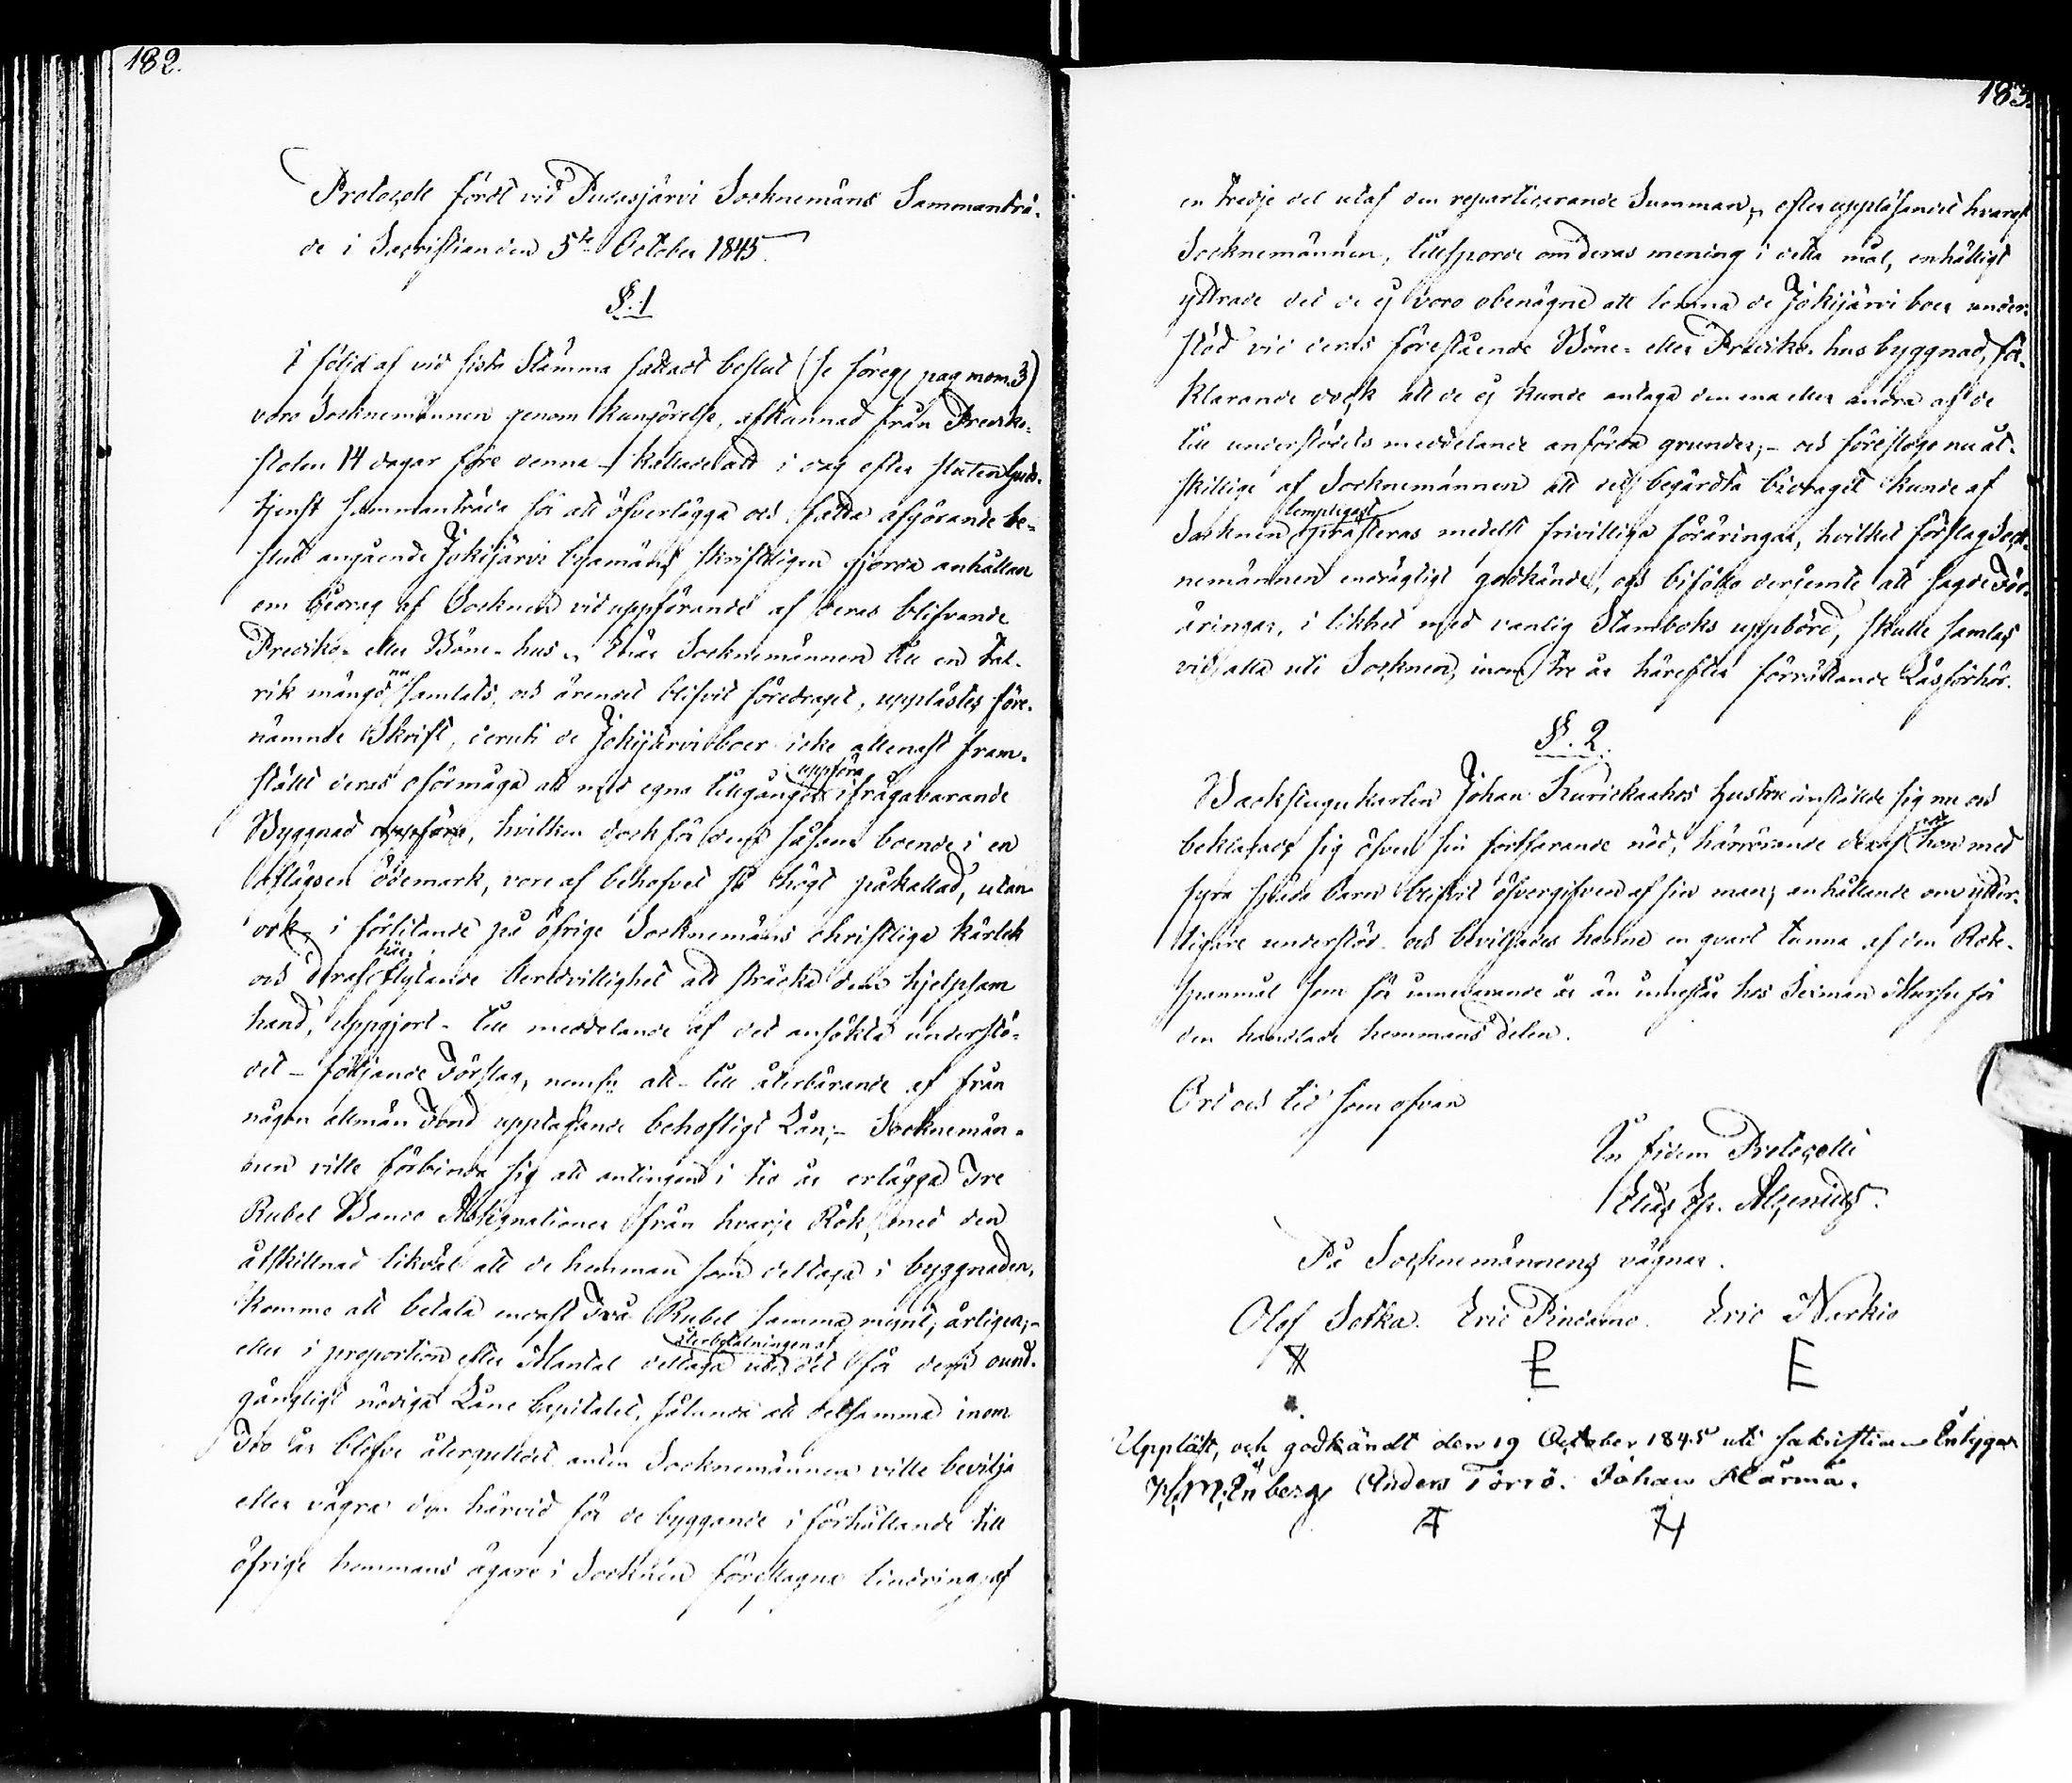 182.
Protocoll fördt vid Pudasjärvi Socknemäns Sammanträ-
de i Sacristian den 5te October 1845.
§. 1
I följd af vid sista Stämma fattadt beslut (se föreg. pag mom. 3)
voro Socknemännen genom kungörelse, afkunnad från Prediko-
stolen 14 dagar före denna – kallade att i dag efter slutad Guds-
tjenst sammanträda för att öfverlägga och fatta afgörande be-
slut angående Jokijärvi byamäns skriftligen gjorda anhållan
om bidrag af Socknen vid uppförandet af deras blifvande
Prediko- eller Böne-hus. Enär Socknemännen till en tal-
rik mängd nu samlats, och ärendet blifvit föredraget, upplästes före-
nämnde Skrift, deruti de Jokijärviboer icke allenast fram-
ställt deras oförmåga att med egna tillgångar uppföra ifrågavarande
Byggnad uppföra, hvilken dock för dem såsom boende i en
aflägsen ödemark, vore af behofvet så högt påkallad, utan
ock, i förlitande på öfrige Socknemäns christliga kärlek
och deraf härflytande beredvillighet att sträcka dem hjelpsam
hand, uppgjort – till meddelande af det ansökta understö-
det – följande Förslag, nemln att – till återbärande af från
någon allmän Fond upptagande behöfligt Lån; – Socknemän-
nen ville förbinda sig att antingen i tio år erlägga Tre
Rubel Banco Assignationer från hvarje Rök, med den
åtskillnad likväl att de hemman som deltaga i byggnaden,
komme att betala endast Två Rubel samma mynt, årligen; –
eller i proportion efter Mantal deltaga uti återbetalningen af det för dem ound-
gängligt nödiga Låne Capitalet, sålunda att detsamma inom
Tio år blefve återguldet antin Socknemännen ville bevilja
eller vägra den härvid för de byggande i förhållande till
öfrige hemmans ägare i Socknen föreslagna lindring af
183.
en tredje del utaf den repartierande Summan, efter uppläsandet hvaraf
Socknemännen, tillsporde om deras mening i detta mål, enhälligt
yttrade det de ej voro obenägne att lemna de Jokijärvi boer under-
stöd vid deras förestående Böne- eller Prediko-hus byggnad, för-
klarande dock att de ej kunde antaga den ena eller andra af de
till understödets meddelande anförda grunder; – och föreslogo nu åt-
skillige af Socknemännen att det begärdta bidraget kunde af
Socknen lämpligast presteras medelst frivilliga föräringar, hvilket förslag Sock-
nemännen endrägtigt godkände, och biföllo derjemte att sagde För-
äringar, i likhet med vanlig Stamboks uppbörd, skulle samlas
vid alla uti Socknen, inom tre år härefter förrättande Läsförhör.
§. 2.
Backstugukarlen Johan Kurickaahos Hustru inställde sig nu och
beklagade sig öfver sin fortfarande nöd, härrörande deraf att hon med
fyra späda barn blifvit öfvergifven af sin man; anhållande om ytter-
ligare understöd och beviljades henne en qvart tunna af den Rote-
spanmål som för innevarande år än innestår hos Sexman Marsu för
den handlade hemmans delen.
Ort och tid som ofvan
In fidem Protocolli
Elias Joh. Alcenius.
På Socknemännens vägnar.
Olof Sotka. Eric Pindamo. Eric Nurkio
E
Uppläst, och godkändt den 19 October 1845 uti sakristian betygar
H. M. Enberg Anders Törrö. Johan Härmä.